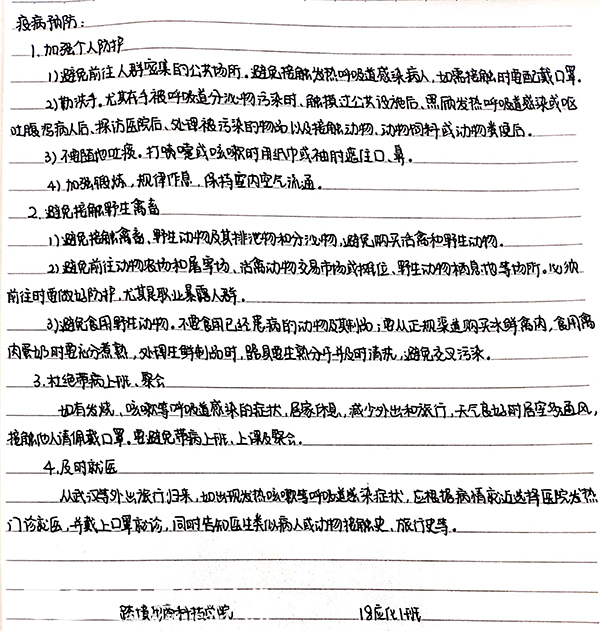 疫病预防：
1. 加强个人防护
1) 避免前往人群密集的公共场所。避免接触发热呼吸道感染病人，如需接触时要配戴口罩。
2) 勤洗手。尤其在手被呼吸道分泌物污染时、触摸过公共设施后、照顾发热呼吸道感染或呕
吐腹泻病人后、探访医院后、处理被污染的物品以及接触动物、动物饲料或动物粪便后。
3) 不要随地吐痰。打喷嚏或咳嗽时用纸巾或袖肘遮住口、鼻。
4) 加强锻炼，规律作息，保持室内空气流通。
2. 避免接触野生禽畜
1) 避免接触禽畜、野生动物及其排泄物和分泌物，避免购买活禽和野生动物。
2) 避免前往动物农场和屠宰场、活禽动物交易市场或摊位、野生动物栖息地等场所。必须
前往时要做好防护，尤其是职业暴露人群。
3) 避免食用野生动物。不要食用已经患病的动物及其制品；要从正规渠道购买冰鲜禽肉，食用禽
肉蛋奶时要充分煮熟，处理生鲜制品时，器具要生熟分开并及时清洗，避免交叉污染。
3. 杜绝带病上班、聚会
如有发烧、咳嗽等呼吸道感染的症状，居家休息，减少外出和旅行，天气良好时居室多通风，
接触他人请佩戴口罩。要避免带病上班、上课及聚会。
4. 及时就医
从武汉等外出旅行归来，如出现发热咳嗽等呼吸道感染症状，应根据病情就近选择医院发热
门诊就医，并戴上口罩就诊，同时告知医生类似病人或动物接触史、旅行史等。
18应化1班